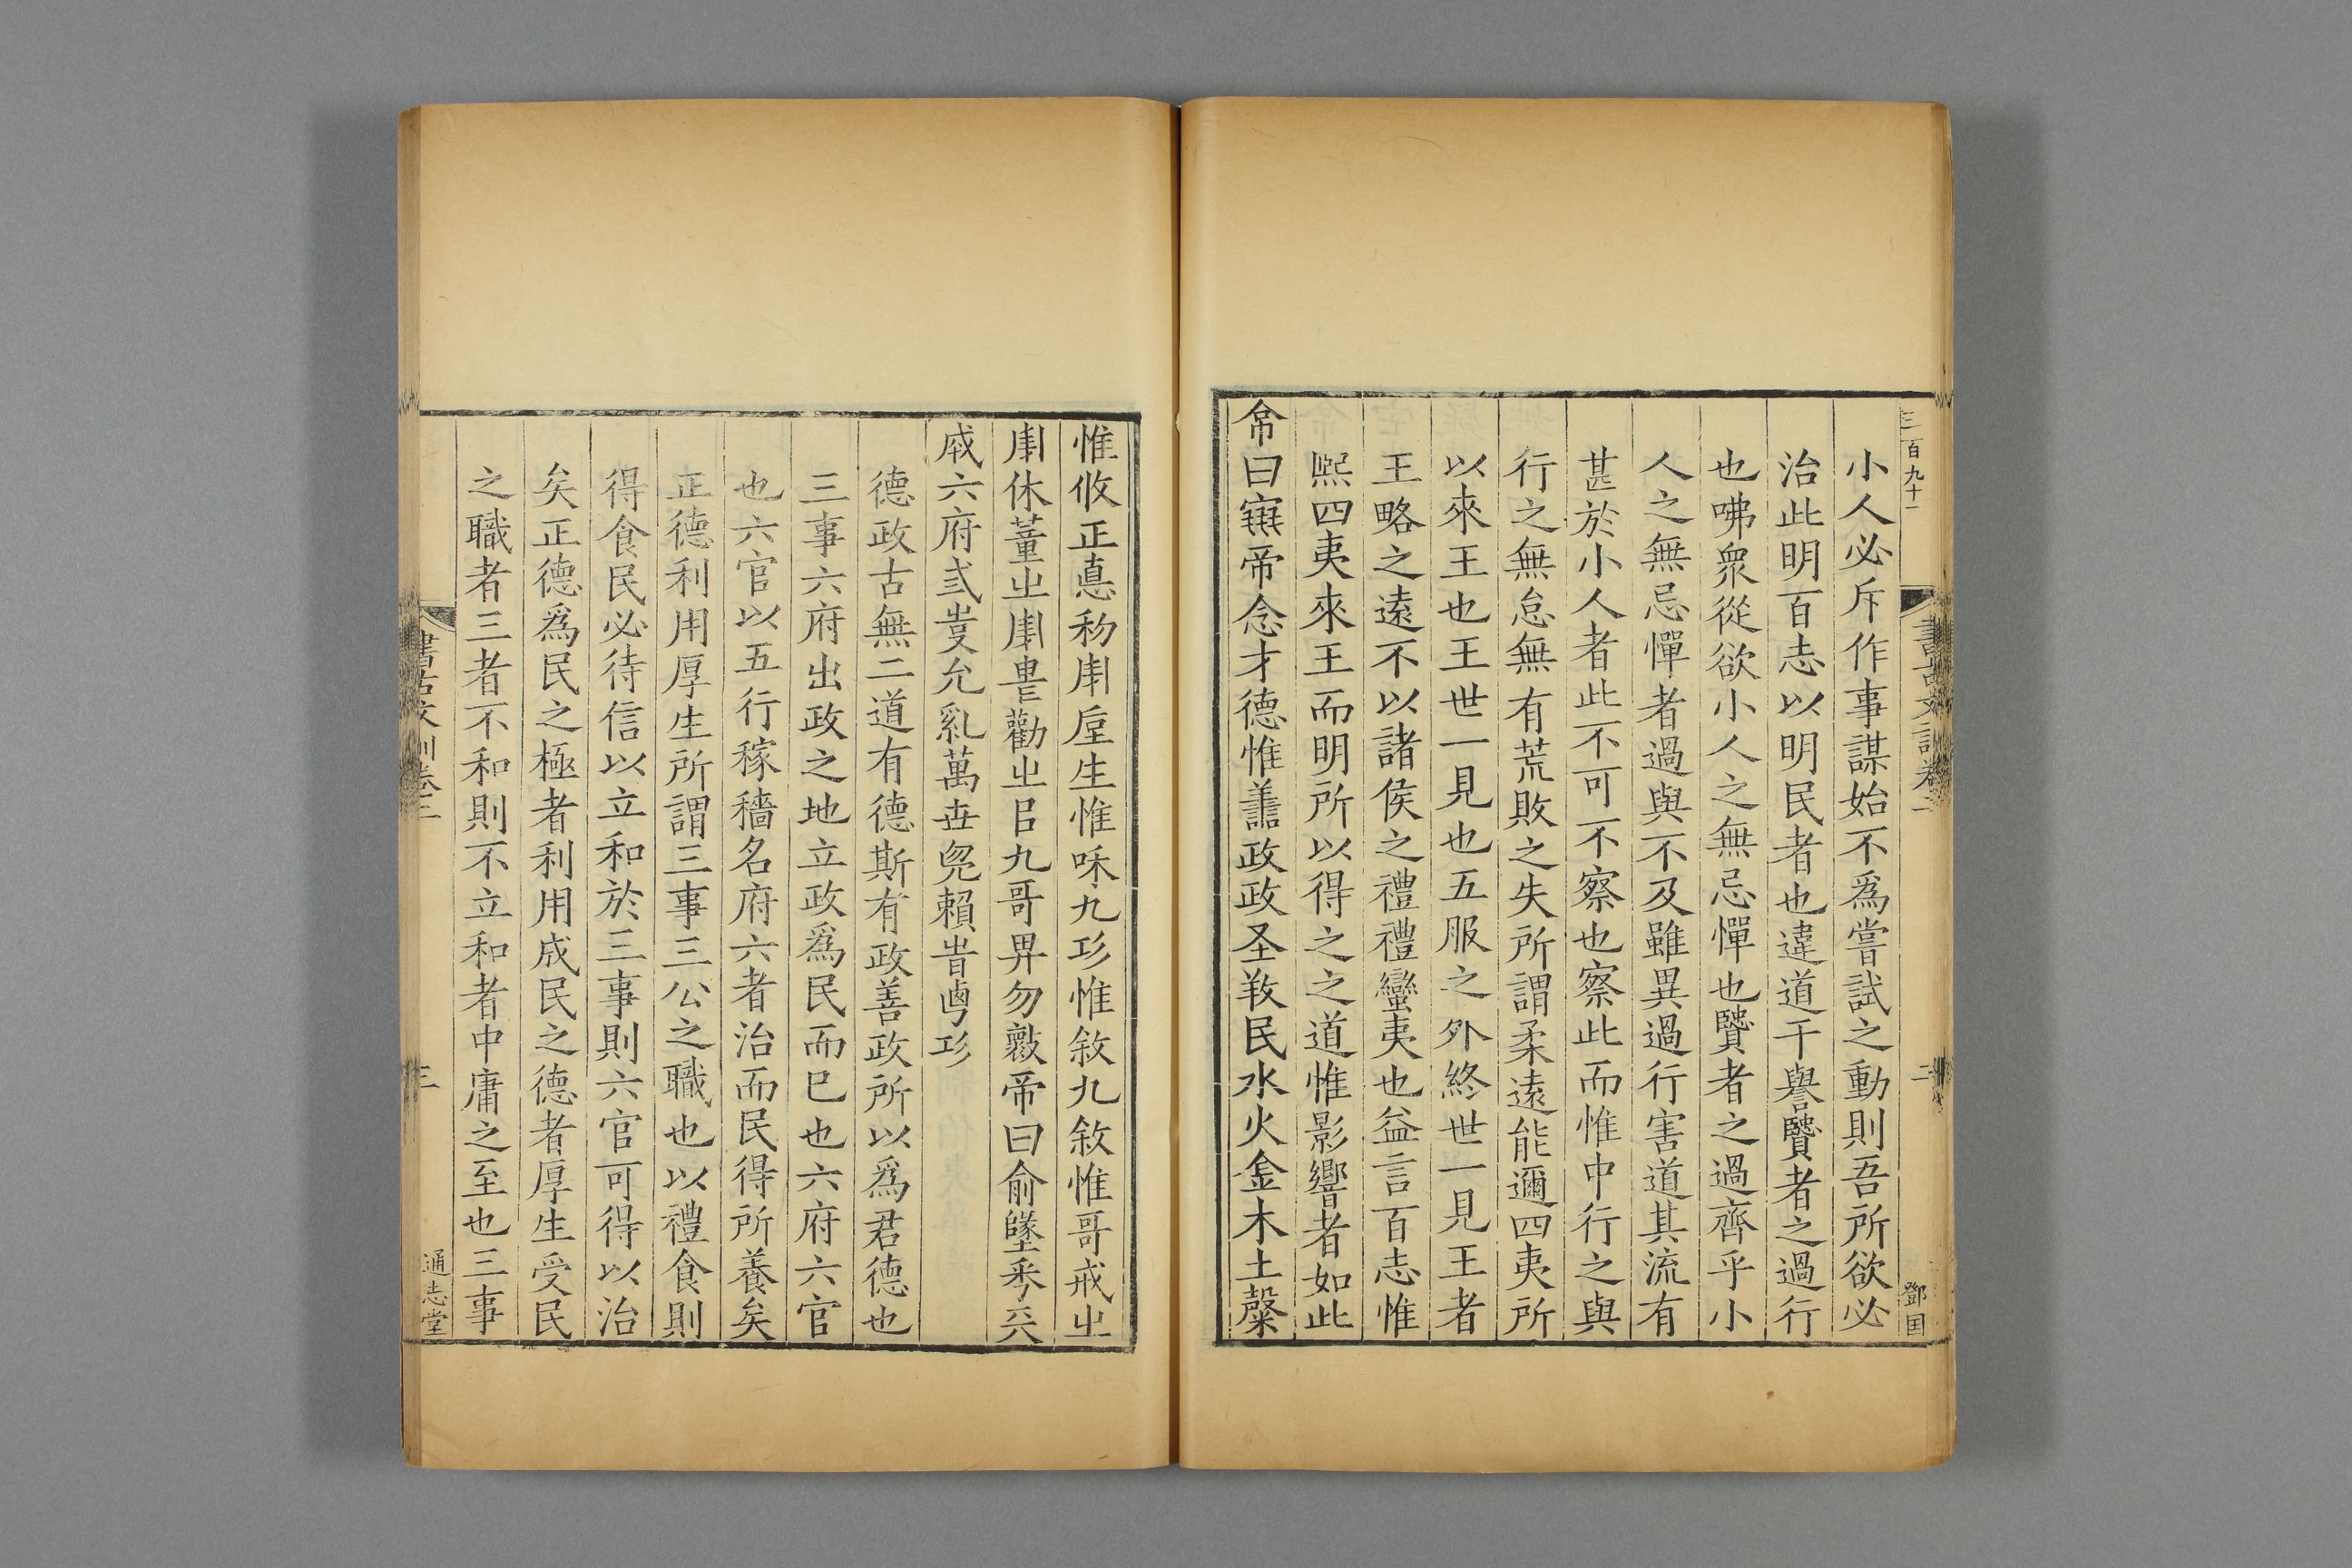 三百九十一
小人必斥作事謀始不爲嘗試之動則吾所欲必
治此明百志以明民者也違道干譽贒者之過行
也咈衆從欲小人之無忌憚也贒者之過齊乎小
人之無忌憚者過與不及雖異過行害道其流有
甚於小人者此不可不察也察此而惟中行之與
行之無怠無有荒敗之失所謂柔遠能邇四夷所
以來王也王世一見也五服之外終世一見王者
王略之遠不以諸侯之禮禮蠻夷也益言百志惟
熙四夷來王而明所以得之之道惟影響者如此
曰帝念才德惟譱政政圣民水火金木土
鄧国
惟收正惪生惟咊九惟敘九敘惟哥戒㞢
休董㞢勸㞢㠯九哥勿帝曰俞
六府允萬賴
德政古無二道有德斯有政善政所以爲君德也
三事六府出政之地立政爲民而巳也六府六官
也六官以五行稼穡名府六者治而民得所養矣
正德利用厚生所謂三事三公之職也以禮食則
得食民必待信以立和於三事則六官可得以治
矣正德爲民之極者利用成民之德者厚生受民
之職者三者不和則不立和者中庸之至也三事
通志堂